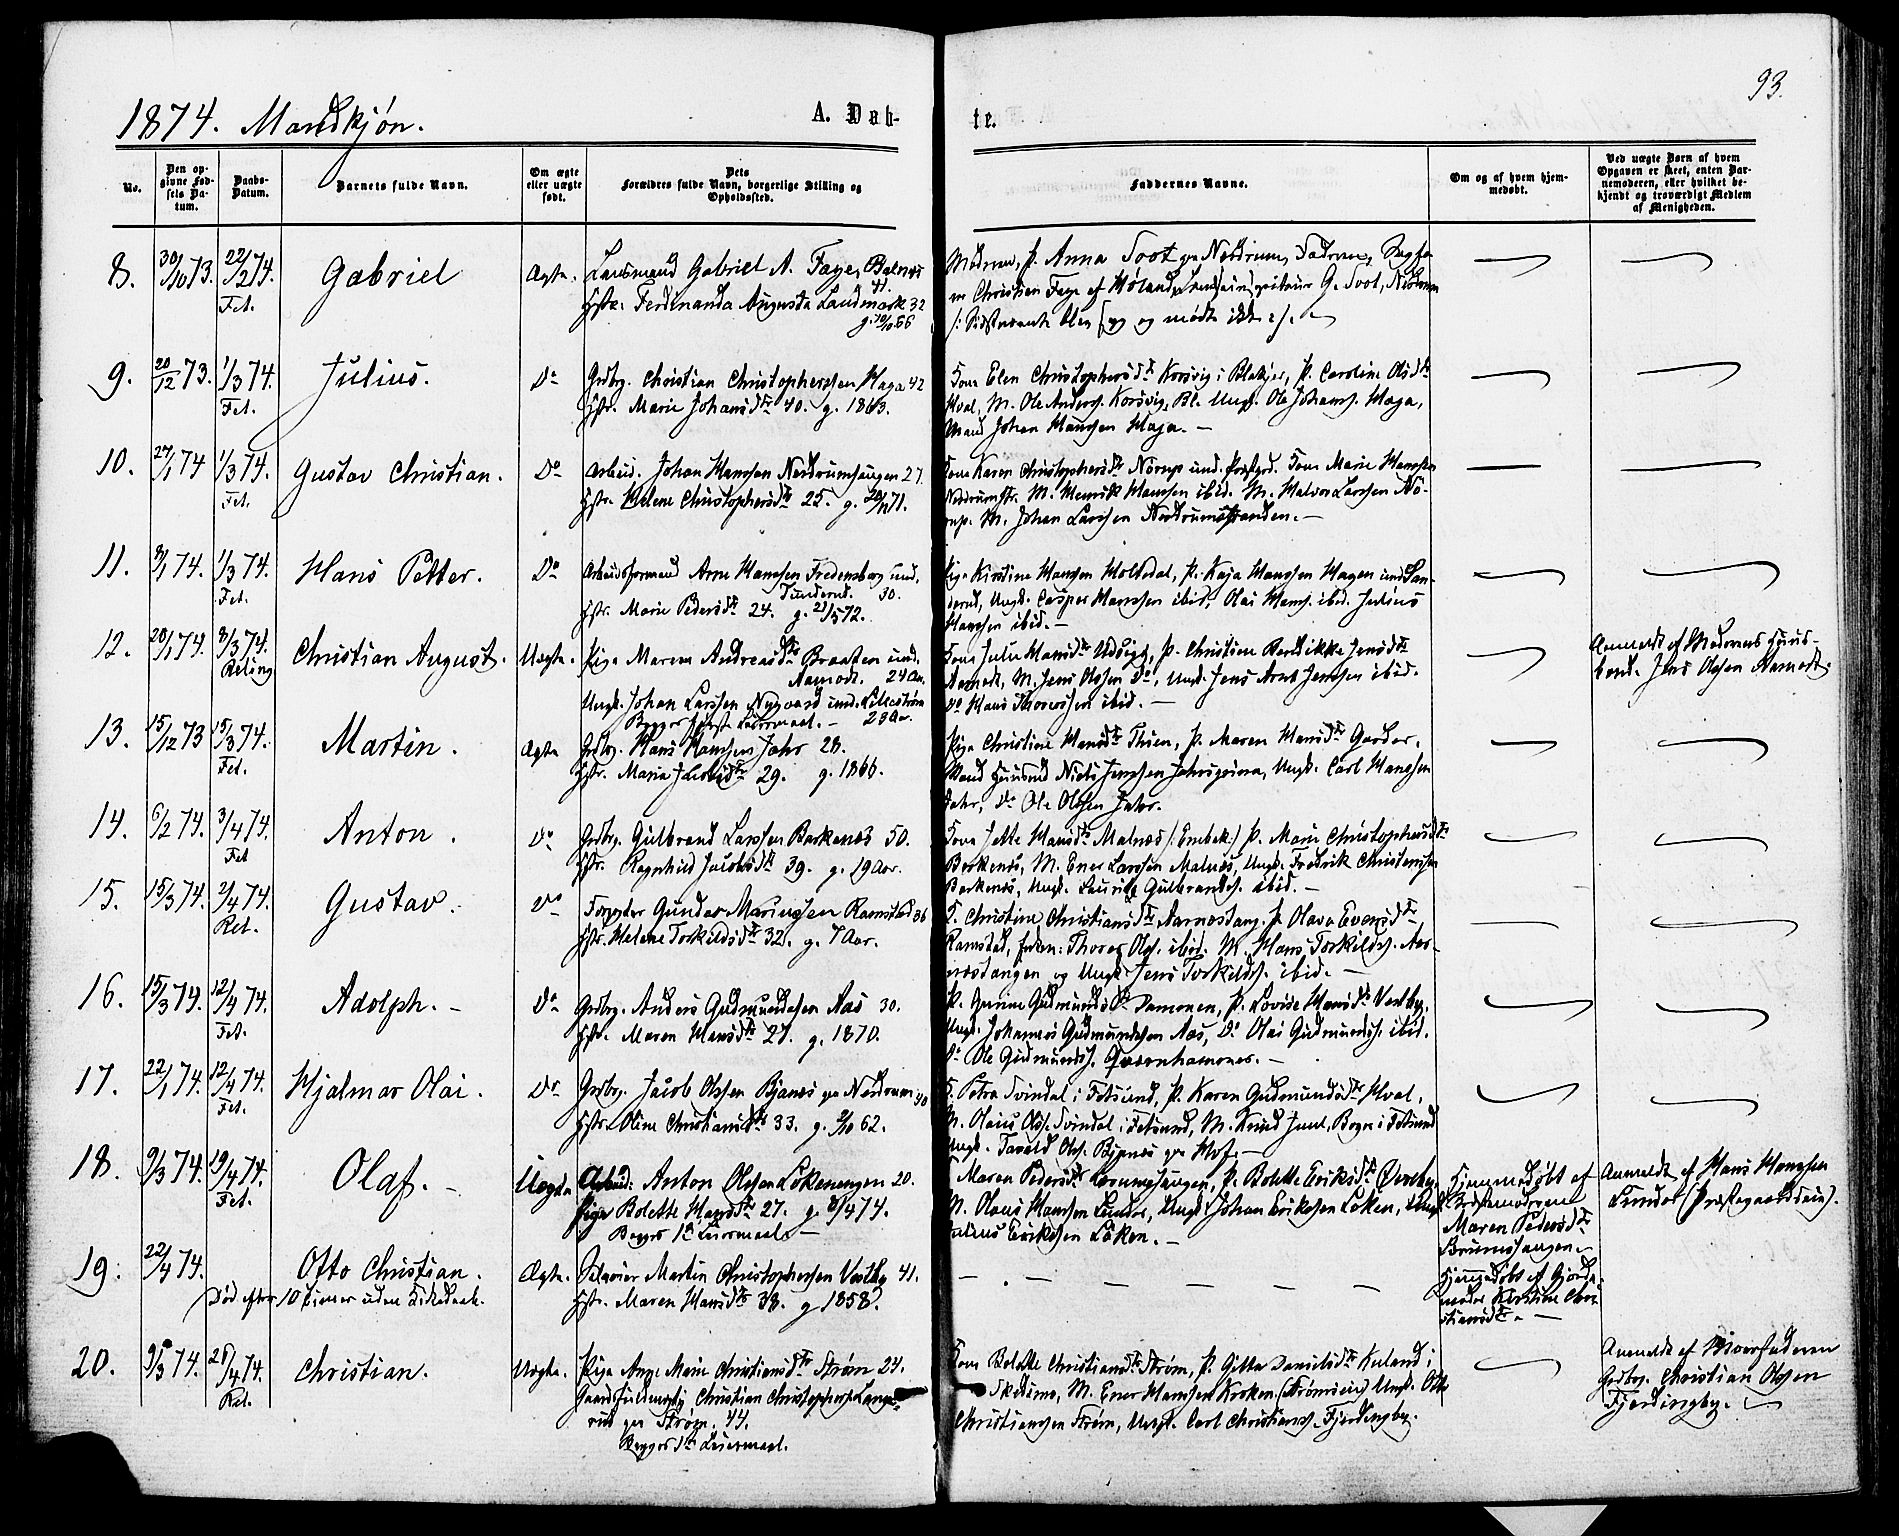 93.
1874. Mandkjøn.
A. Døb-
te.
No.
Den op-
givne Fød-
sels Da-
tum.
Daabs-
Datum.
Barnets fulde Navn.
Om ægte
eller uægte
født.
Dets
Forældres fulde Navn, borgerlige Stilling og
Opholdssted.
Faddernes Navne.
Om og af hvem hjem-
medøbt.
Ved uægte Børn af hvem
Opgaven er skeet, enten Bar-
nemoderen, eller hvilket be-
kjendt og troværdigt Medlem
af Menigheden.
8.
30/10 73.
22/2 74.
Fet.
Gabriel
Ægte.
Lensmand Gabriel A. Faye, Balnes
41.
Hstr. Ferdinanda Augusta Landmark 32
g. 10/10 66
P. Anna Soot
Christian Faye af Høland, G. Soot,
og mødte ikke
9.
20/12 73.
1/3 74.
Fet.
Julius.
Do
Grdbrg. Christian Christophersen Haga 42
Hstr. Marie Johansdtr 40. g. 1863.
Kone Elen Christophersdtr Korsvig i Blakjer, P. Caroline Olsdtr
Hval, M. Ole Anders. Korsvig, Bl. Ungk. Ole Johans. Haga,
Mand Johan Hansen Haga. —
10.
27/1 74
1/3 74.
Fet.
Gustav Christian.
Do
Arbeid. Johan Hansen Nordrumhaugen 27.
Hstr. Helene Christophersdtr 25. g. 71.
Kone Karen Christophersdtr Nörup und. Præstgrd. Kone Marie Hansen
M. Henrik Hansen ibid. M. Halvor Larssen Nö-
rup. M. Johan Larssen Nordrumstranden. —
11.
8/1 74.
1/3 74.
Fet.
Hans Petter.
Do
Arbeidsformand Arne Hanssen Fredensborg und.
30.
Hstr. Marie Pedersdtr 24. g. 21/5 72.
Pige Kirstine Hansen P. Kaja Hanssen Hagen und
Ungk. Casper Hanssen ibid, Olai Hans. ibid. Julius
Hanssen ibid. —
12.
28/1 74.
8/3 74.
Reling
Christian August.
Uægte.
Pige Maren Andreasdtr Braaten und.
Aamodt. 24 Aar.
Ungk. Johan Larssen Nygaard und. Lillestrøm
Begges første Leiermaal. — 23 Aar.
Kone Julie Hansdtr P. Christine Jensdtr
Aamodt, M. Jens Olssen Do, Ungk. Jens Jenssen ibid.
Do Hans Thoressen ibid. —
Anmeldt af Moderens Huus-
bond. Jens Olssen Aamodt.
13.
15/12 73
15/3 74.
Fet.
Martin.
Ægte
Grdbrg. Hans Hanssen Jahr 28.
Hstr. Maria 29. g. 1866.
Pige Christine Hansdtr Thien, P. Maren Hansdtr Garder.
Mand Huusmd Niels Jenssen Ungk. Carl Hanssen
Jahr, Do Ole Olssen Jahr.
14.
6/2 74.
3/4 74.
Fet
Anton.
Do
Grdbrg. Gulbrand Larssen Berkenes 50.
Hstr. Ragnhild Jacobsdtr 39. g. 19 Aar.
Kone Jette Hansdtr Malnes (: Enkek.:) P. Marie Christophersdtr
Berkenes, M. Ener Larssen Malnes, Ungk. Fredrik Christenssen
Berkenes, Ungk. Lauritz Gulbrands. ibid. —
15.
15/3 74.
2/4 74.
Rel.
Gustav.
Do
Forpgter Gunder Mariussen Ramstad 36
Hstr. Helene Torkildsdtr 32. g. 7 Aar.
K. Christine Christiansdtr Aarnestang. P. Olava Evensdtr
Ramstad, Enkem: Thorer Ols. ibid. M. Hans Torkilds. Aar-
nestangen og Ungk. Jens Torkilds. ibid. —
16.
15/3 74.
12/4 74.
Fet.
Adolph. —
Do
Grdbrg. Anders Gudmundssen Aas 30.
Hstr. Maren Hansdtr 27. g. 1870.
P. Gudmundsdtr P. Lovise Hansdtr Vestby,
Ungk. Johannes Gudmundssen Aas, Do Olai Gudmunds. ibid.
Do Ole Gudmunds. —
17.
22/1 74.
12/4 74.
Fet.
Hjalmar Olai.
Do
Grdbrg. Jacob Olssen Bjanes pa Nordrum 40
Hstr. Oline Christiansdtr 33. g. 62.
K. Petra Svindal i Fetsund, P. Karen Gudmundsdtr Hval.
M. Olaus Ols. Svindal i Fetsund, M. Knud Juul, Boger i Fetsund
Ungk. Tarald Ols. Bjanes pa Hof. —
18.
9/3 74.
19/4 74.
Fet.
Olaf. —
Uægte
Arbeid: Anton Olssen Lökenengen 20.
Pige Bolette Hansdtr 27. g. 8/4 74.
Begges 1ste Leiermaal. —
Maren Pedersdtr P. Bolette Eriksdtr Øverby,
M. Olaus Hanssen Lundar, Ungk. Johan Erikssen Löken, Ungk.
Julius Erikssen Löken. —
Hjemmedøbt af
Bestemoderen
Maren Pedersdtr
Brunshaugen. —
Anmeldt af Hans Hanssen
Lundar (Præstegaardseie).
19.
22/4 74.
Død efter 10 Timer uden Kirkedaab.
Otto Christian.
Ægte.
Selveier Martin Christophersen Vestby 41.
Hstr. Maren Hansdtr 38. g 1858.
— — — — — —
Hjemmedøbt af Gjord-
moder Kirstine Chri-
stiansdtr. —
20.
9/3 74.
26/4 74.
Rel.
Christian.
Uægte.
Pige Anne Marie Christiansdtr Strøm 24.
Christian Christophers. Lange-
rud pa Strøm. 44.
Begges 1ste Leiermaal.
Kone Bolette Christiansdtr Strøm, P. Gitta Danielsdtr Kuland i
Skedsmo, M. Ener Hanssen Kroken (Strømseie) Ungk. Otto
Christianssen Strøm, Ungk. Carl Christians. Fjerdingby.
Anmeldt af Morfaderen
Grdbrg. Christian Olssen
Fjerdingby. —